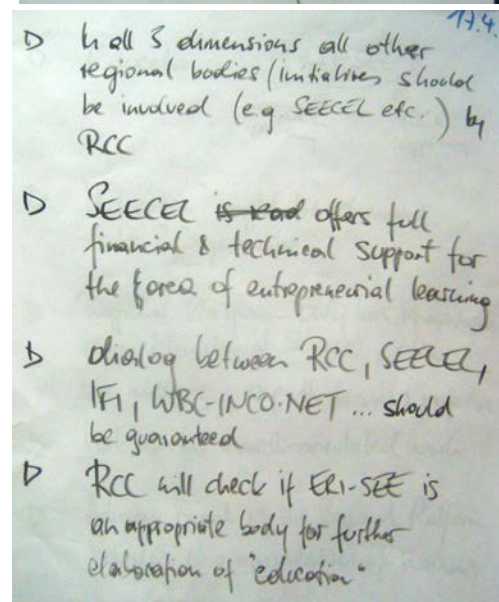 17.4.
▷ In all 3 dimensions all other
regional bodies/initiatives should
be involved (e.g SEECEL etc.) by
RCC
▷ SEECEL is read offers full
financial & technical support for
the area of entrepreneurial learning
▷ dialog between RCC, SEECEL,
IFI, WBC-INCO.NET ... should
be guaranteed
▷ RCC will check if ERI-SEE is
an appropriate body for further
elaboration of "education"